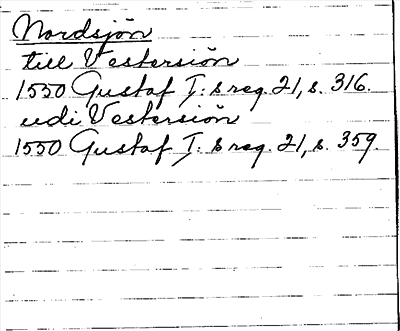 Nordsjön
till Vestersiön
1550 Gustaf I:s reg. 21, s. 316.
udi Vestersiön
1550 Gustaf I:s reg. 21, s. 359.